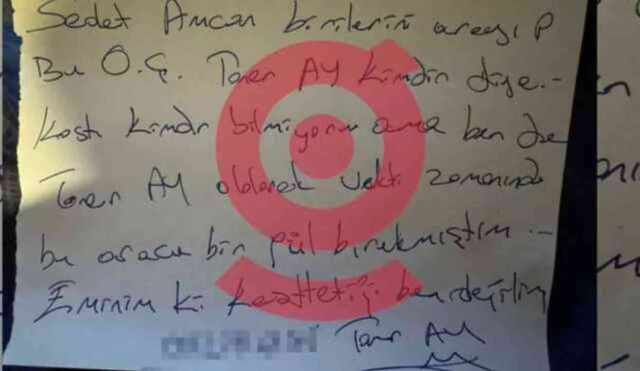 Sedat Amcan birilerin arayıp
Bu O.Ç. Taner AY kimdin diye.-
kastı kimdir bilmiyorum ama ben de
Taner AY olarak vakti zamanında
bu araca bin pul bırakmıştım.-
Eminim ki kasttetiği ben değilim
Taner AY